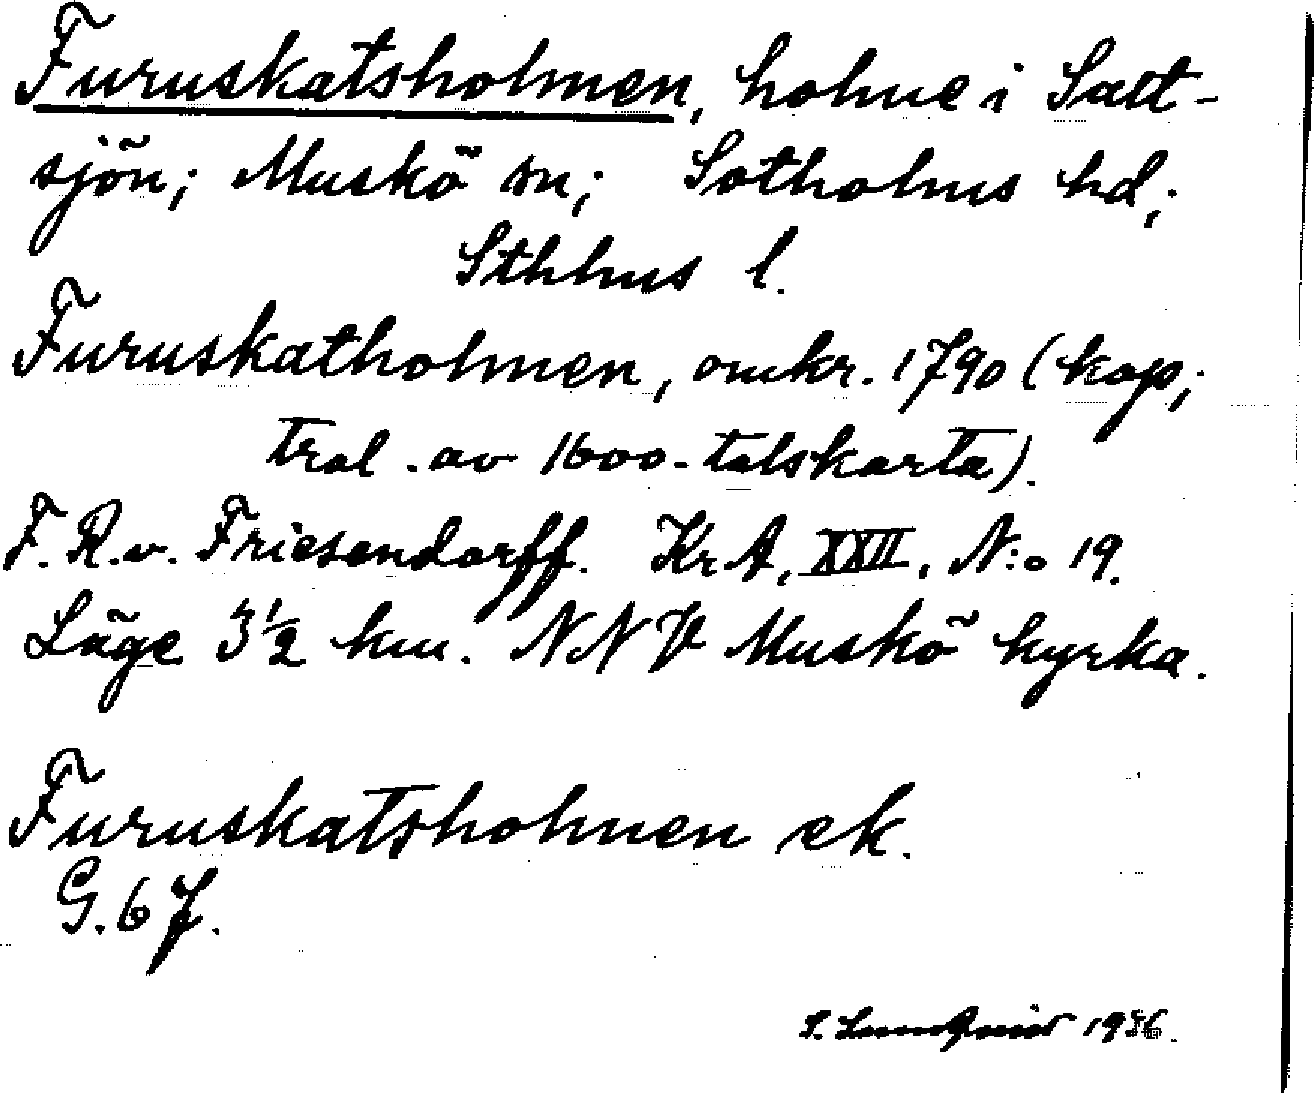 Furuskatsholmen, holme i Salt-
sjön; Muskö sn; Sotholms hd;
Sthlms l.
Furuskatholmen, omkr. 1790 (kop;
trol. av 1600-talskarta).
F. R. v. Friesendorff. KrA, XXII, N:o 19.
Läge 3½ km. NNV Muskö kyrka.
Furuskatsholmen ek.
G. 6 f.
S. Lundqvist 1936.